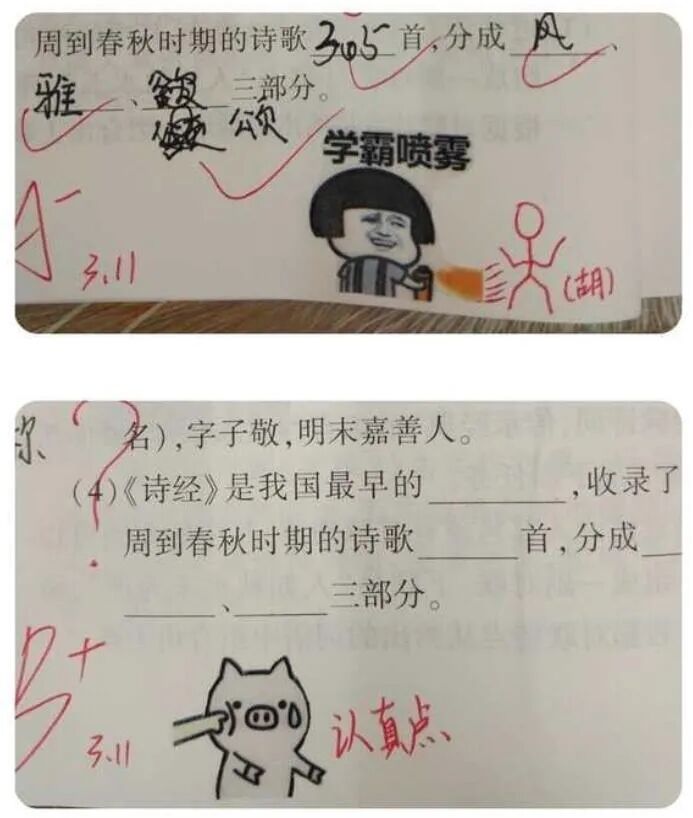 周到春秋时期的诗歌305首,分成风、
雅、三部分。
颂
学霸喷雾
A-
3.11
(胡)
?
名),字子敬,明末嘉善人。
(4)《诗经》是我国最早的______,收录了
周到春秋时期的诗歌______首,分成__
______、______三部分。
B+
3.11
认真点